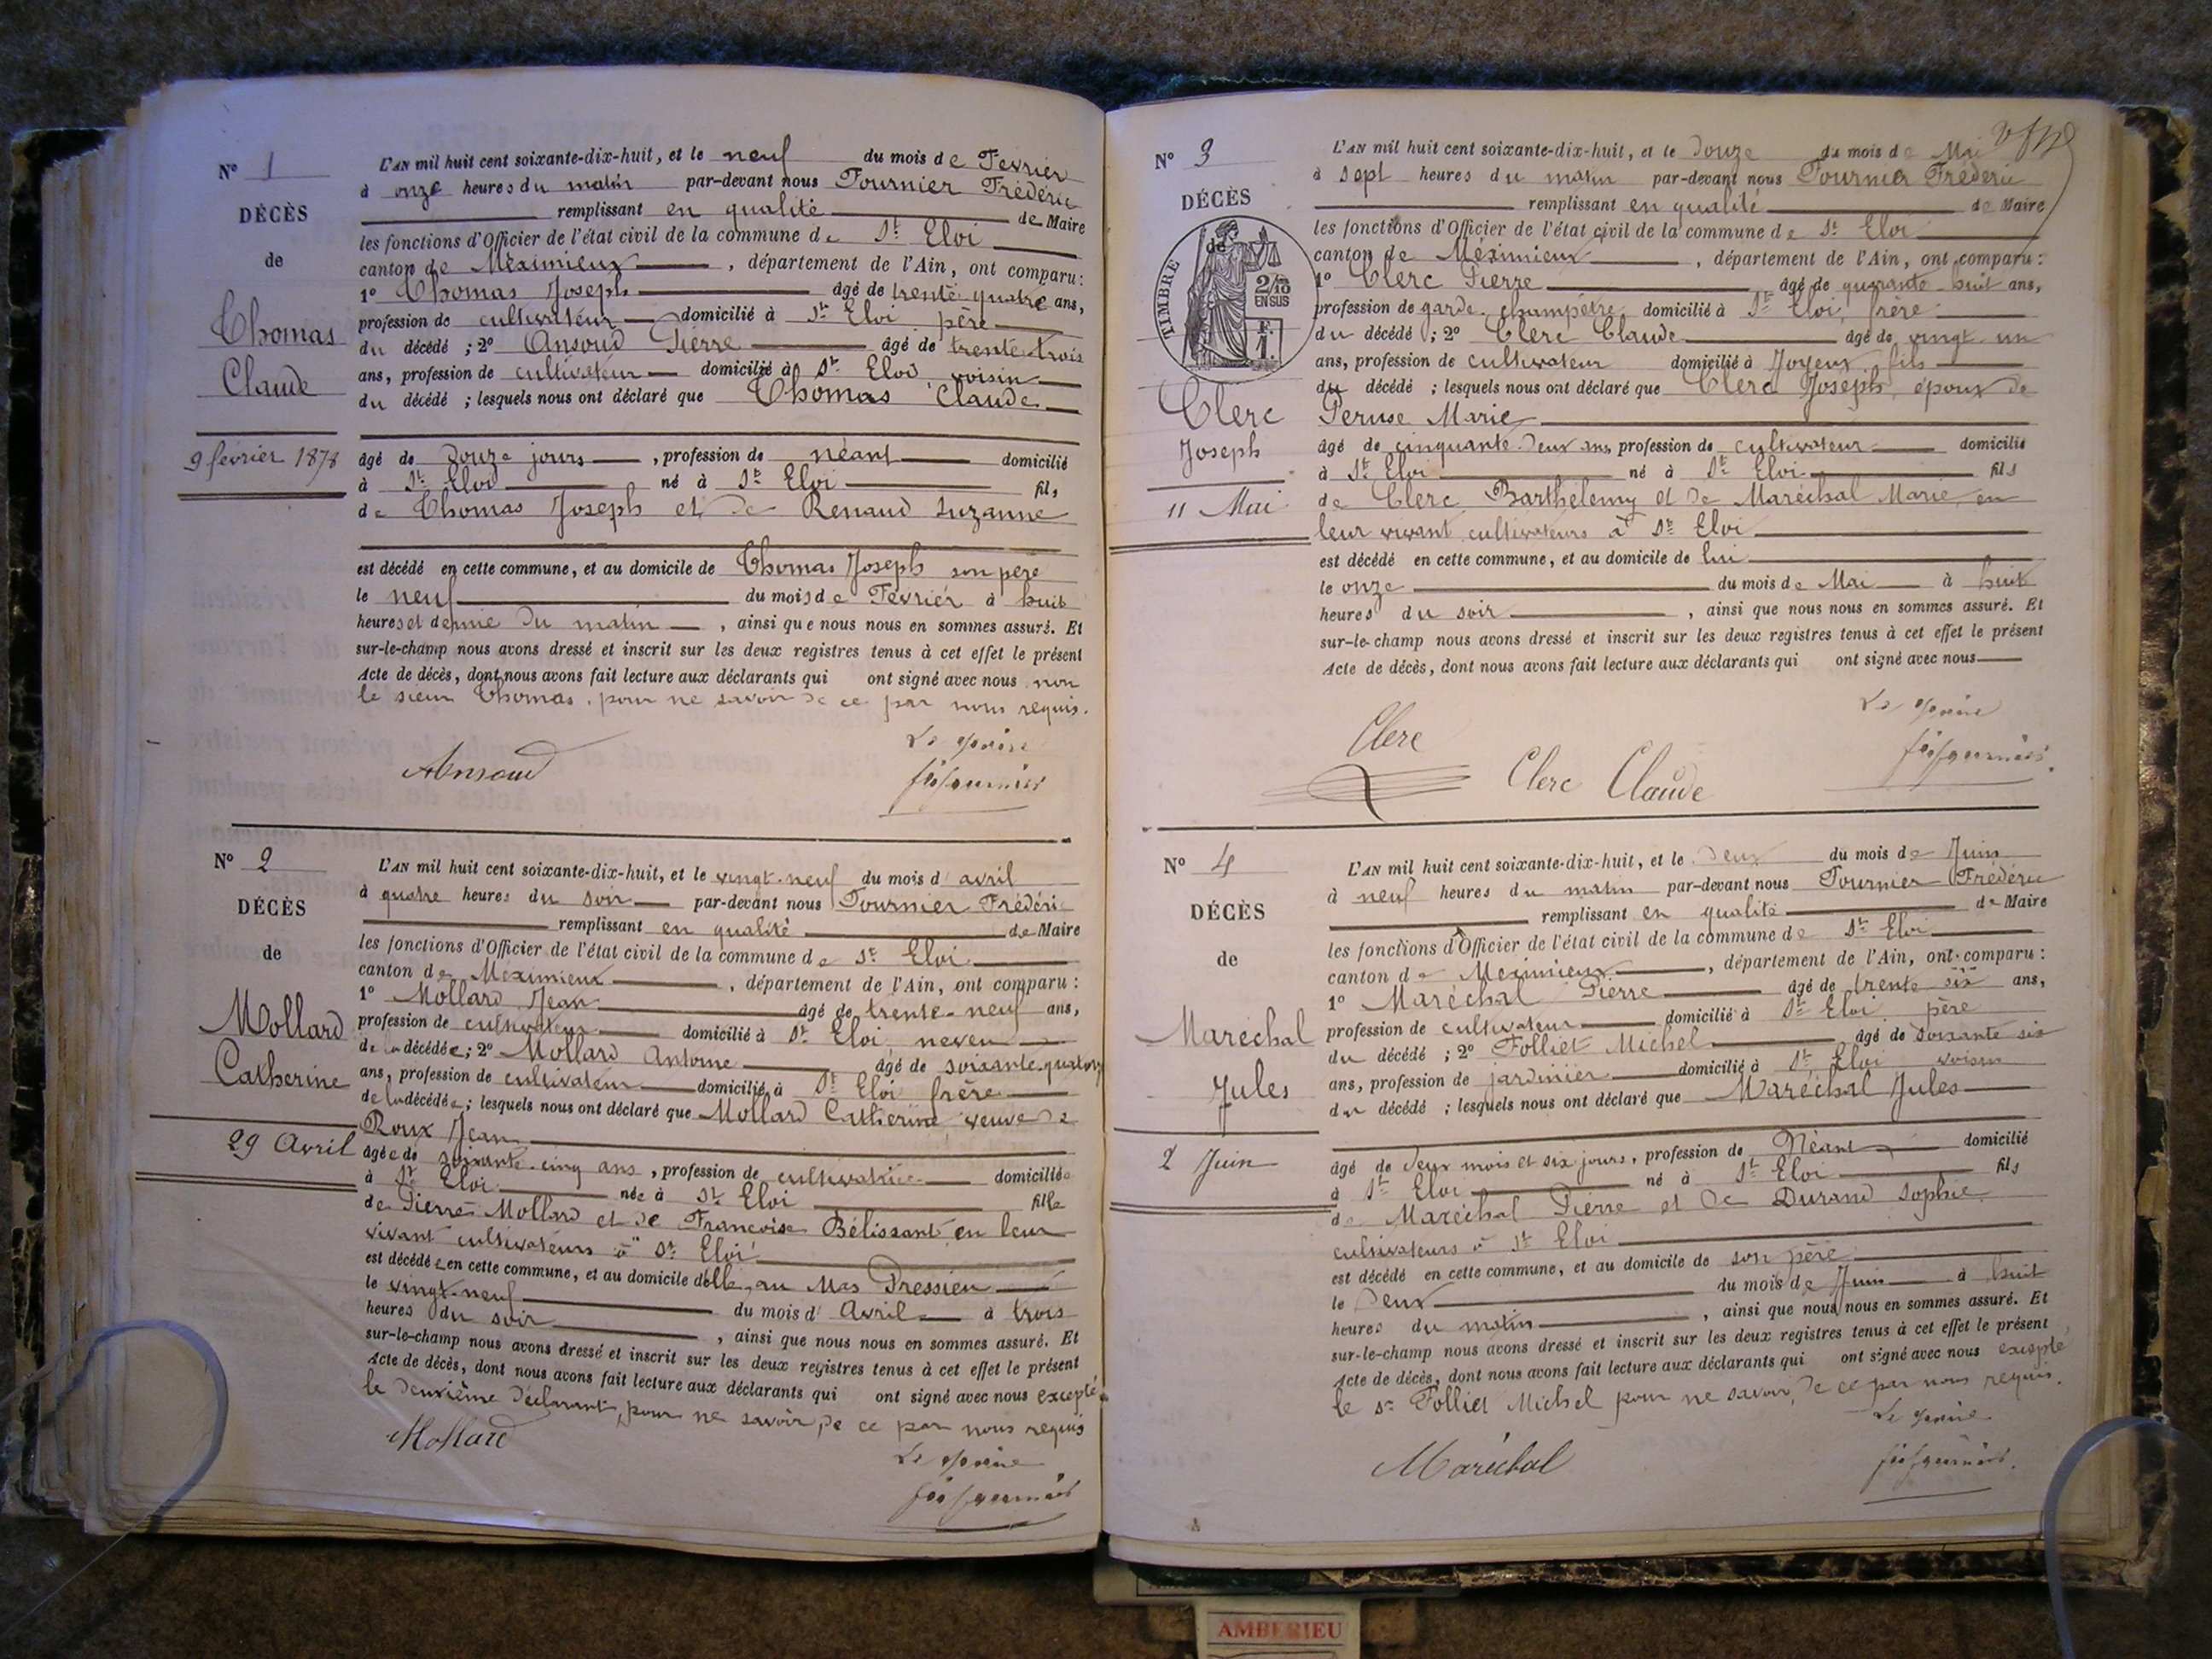 N° 1
DÉCÈS
de
Thomas
Claude
9 février 1878
L'AN mil huit cent soixante-dix-huit, et le neuf du mois de Fevrier
à onze heures du matin par-devant nous Fournier Frédéric
remplissant en qualité de Maire
les fonctions d'Officier de l'état civil de la commune de St Eloi
canton de Méximieux, département de l'Ain, ont comparu :
1° Thomas Joseph âgé de trente quatre ans,
profession de cultivateur domicilié à St Eloi père
du décédé ; 2° Ansoud Pierre âgé de trente-trois
ans, profession de cultivateur domicilié à St Eloi voisin
du décédé ; lesquels nous ont déclaré que Thomas Claude
âgé de douze jours, profession de néant domicilié
à St Eloi né à St Eloi fils
de Thomas Joseph et de Renaud Suzanne
est décédé en cette commune, et au domicile de Thomas Joseph son père
le neuf du mois de Fevrier à huit
heures et demie du matin, ainsi que nous nous en sommes assuré. Et
sur-le-champ nous avons dressé et inscrit sur les deux registres tenus à cet effet le présent
Acte de décès, dont nous avons fait lecture aux déclarants qui ont signé avec nous non
le sieur Thomas, pour ne savoir de ce par nous requis.
Ansoud
Le Maire
N° 2
DÉCÈS
de
Mollard
Catherine
29 Avril
L'AN mil huit cent soixante-dix-huit, et le vingt-neuf du mois d'avril
à quatre heures du soir par-devant nous Fournier Frédéric
remplissant en qualité de Maire
les fonctions d'Officier de l'état civil de la commune de St Eloi
canton de Meximieux, département de l'Ain, ont comparu :
1° Mollard Jean âgé de trente-neuf ans,
profession de cultivateur domicilié à St Eloi neveu
de la décédée ; 2° Mollard Antoine âgé de soixante-quatorze
ans, profession de cultivateur domicilié à St Eloi frère
de la décédée ; lesquels nous ont déclaré que Mollard Catherine, veuve de
Roux Jean
âgée de soixante-cinq ans, profession de cultivatrice domiciliée
à St Eloi née à St Eloi fille
de Pierre Mollard et de Françoise Bélissant en leur
vivant cultivateurs à St Eloi
est décédée en cette commune, et au domicile d'elle, au Mas Pressieu
le vingt-neuf du mois d'Avril à trois
heures du soir, ainsi que nous nous en sommes assuré. Et
sur-le-champ nous avons dressé et inscrit sur les deux registres tenus à cet effet le présent
Acte de décès, dont nous avons fait lecture aux déclarants qui ont signé avec nous excepté
le deuxième déclarant, pour ne savoir, de ce par nous requis
Mollard
Le Maire
N° 3
DÉCÈS
de
TIMBRE
2/10
EN SUS
F.
1.
Clerc
Joseph
11 Mai
L'AN mil huit cent soixante-dix-huit, et le douze du mois de Mai
à sept heures du matin par-devant nous Fournier Frédéric
remplissant en qualité de Maire
les fonctions d'Officier de l'état civil de la commune de St Eloi
canton de Méximieux, département de l'Ain, ont comparu :
1° Clerc Pierre âgé de quarante-huit ans,
profession de garde-champêtre domicilié à St Eloi, frère
du décédé ; 2° Clerc Claude âgé de vingt-un
ans, profession de cultivateur domicilié à Joyeux, fils
du décédé ; lesquels nous ont déclaré que Clerc Joseph, époux de
Peruse Marie
âgé de cinquante-deux ans, profession de cultivateur domicilié
à St Eloi né à St Eloi fils
de Clerc Barthélemy et de Maréchal Marie en
leur vivant cultivateurs à St Eloi
est décédé en cette commune, et au domicile de lui
le onze du mois de Mai à huit
heures du soir, ainsi que nous nous en sommes assuré. Et
sur-le-champ nous avons dressé et inscrit sur les deux registres tenus à cet effet le présent
Acte de décès, dont nous avons fait lecture aux déclarants qui ont signé avec nous
Clerc
Clerc Claude
Le Maire
N° 4
DÉCÈS
de
Maréchal
Jules
2 Juin
L'AN mil huit cent soixante-dix-huit, et le deux du mois de Juin
à neuf heures du matin par-devant nous Fournier Frédéric
remplissant en qualité de Maire
les fonctions d'Officier de l'état civil de la commune de St Eloi
canton de Meximieux, département de l'Ain, ont comparu :
1° Maréchal Pierre âgé de trente six ans,
profession de cultivateur domicilié à St Eloi père
du décédé ; 2° Folliet Michel âgé de soixante six
ans, profession de jardinier domicilié à St Eloi voisin
du décédé ; lesquels nous ont déclaré que Maréchal Jules
âgé de deux mois et six jours, profession de Néant domicilié
à St Eloi né à St Eloi fils
de Maréchal Pierre et de Durand Sophie
cultivateurs à St Eloi
est décédé en cette commune, et au domicile de son père
le deux du mois de Juin à huit
heures du matin, ainsi que nous nous en sommes assuré. Et
sur-le-champ nous avons dressé et inscrit sur les deux registres tenus à cet effet le présent
Acte de décès, dont nous avons fait lecture aux déclarants qui ont signé avec nous excepté
le sr Folliet Michel pour ne savoir, de ce par nous requis.
Maréchal
Le Maire
AMBERIEU